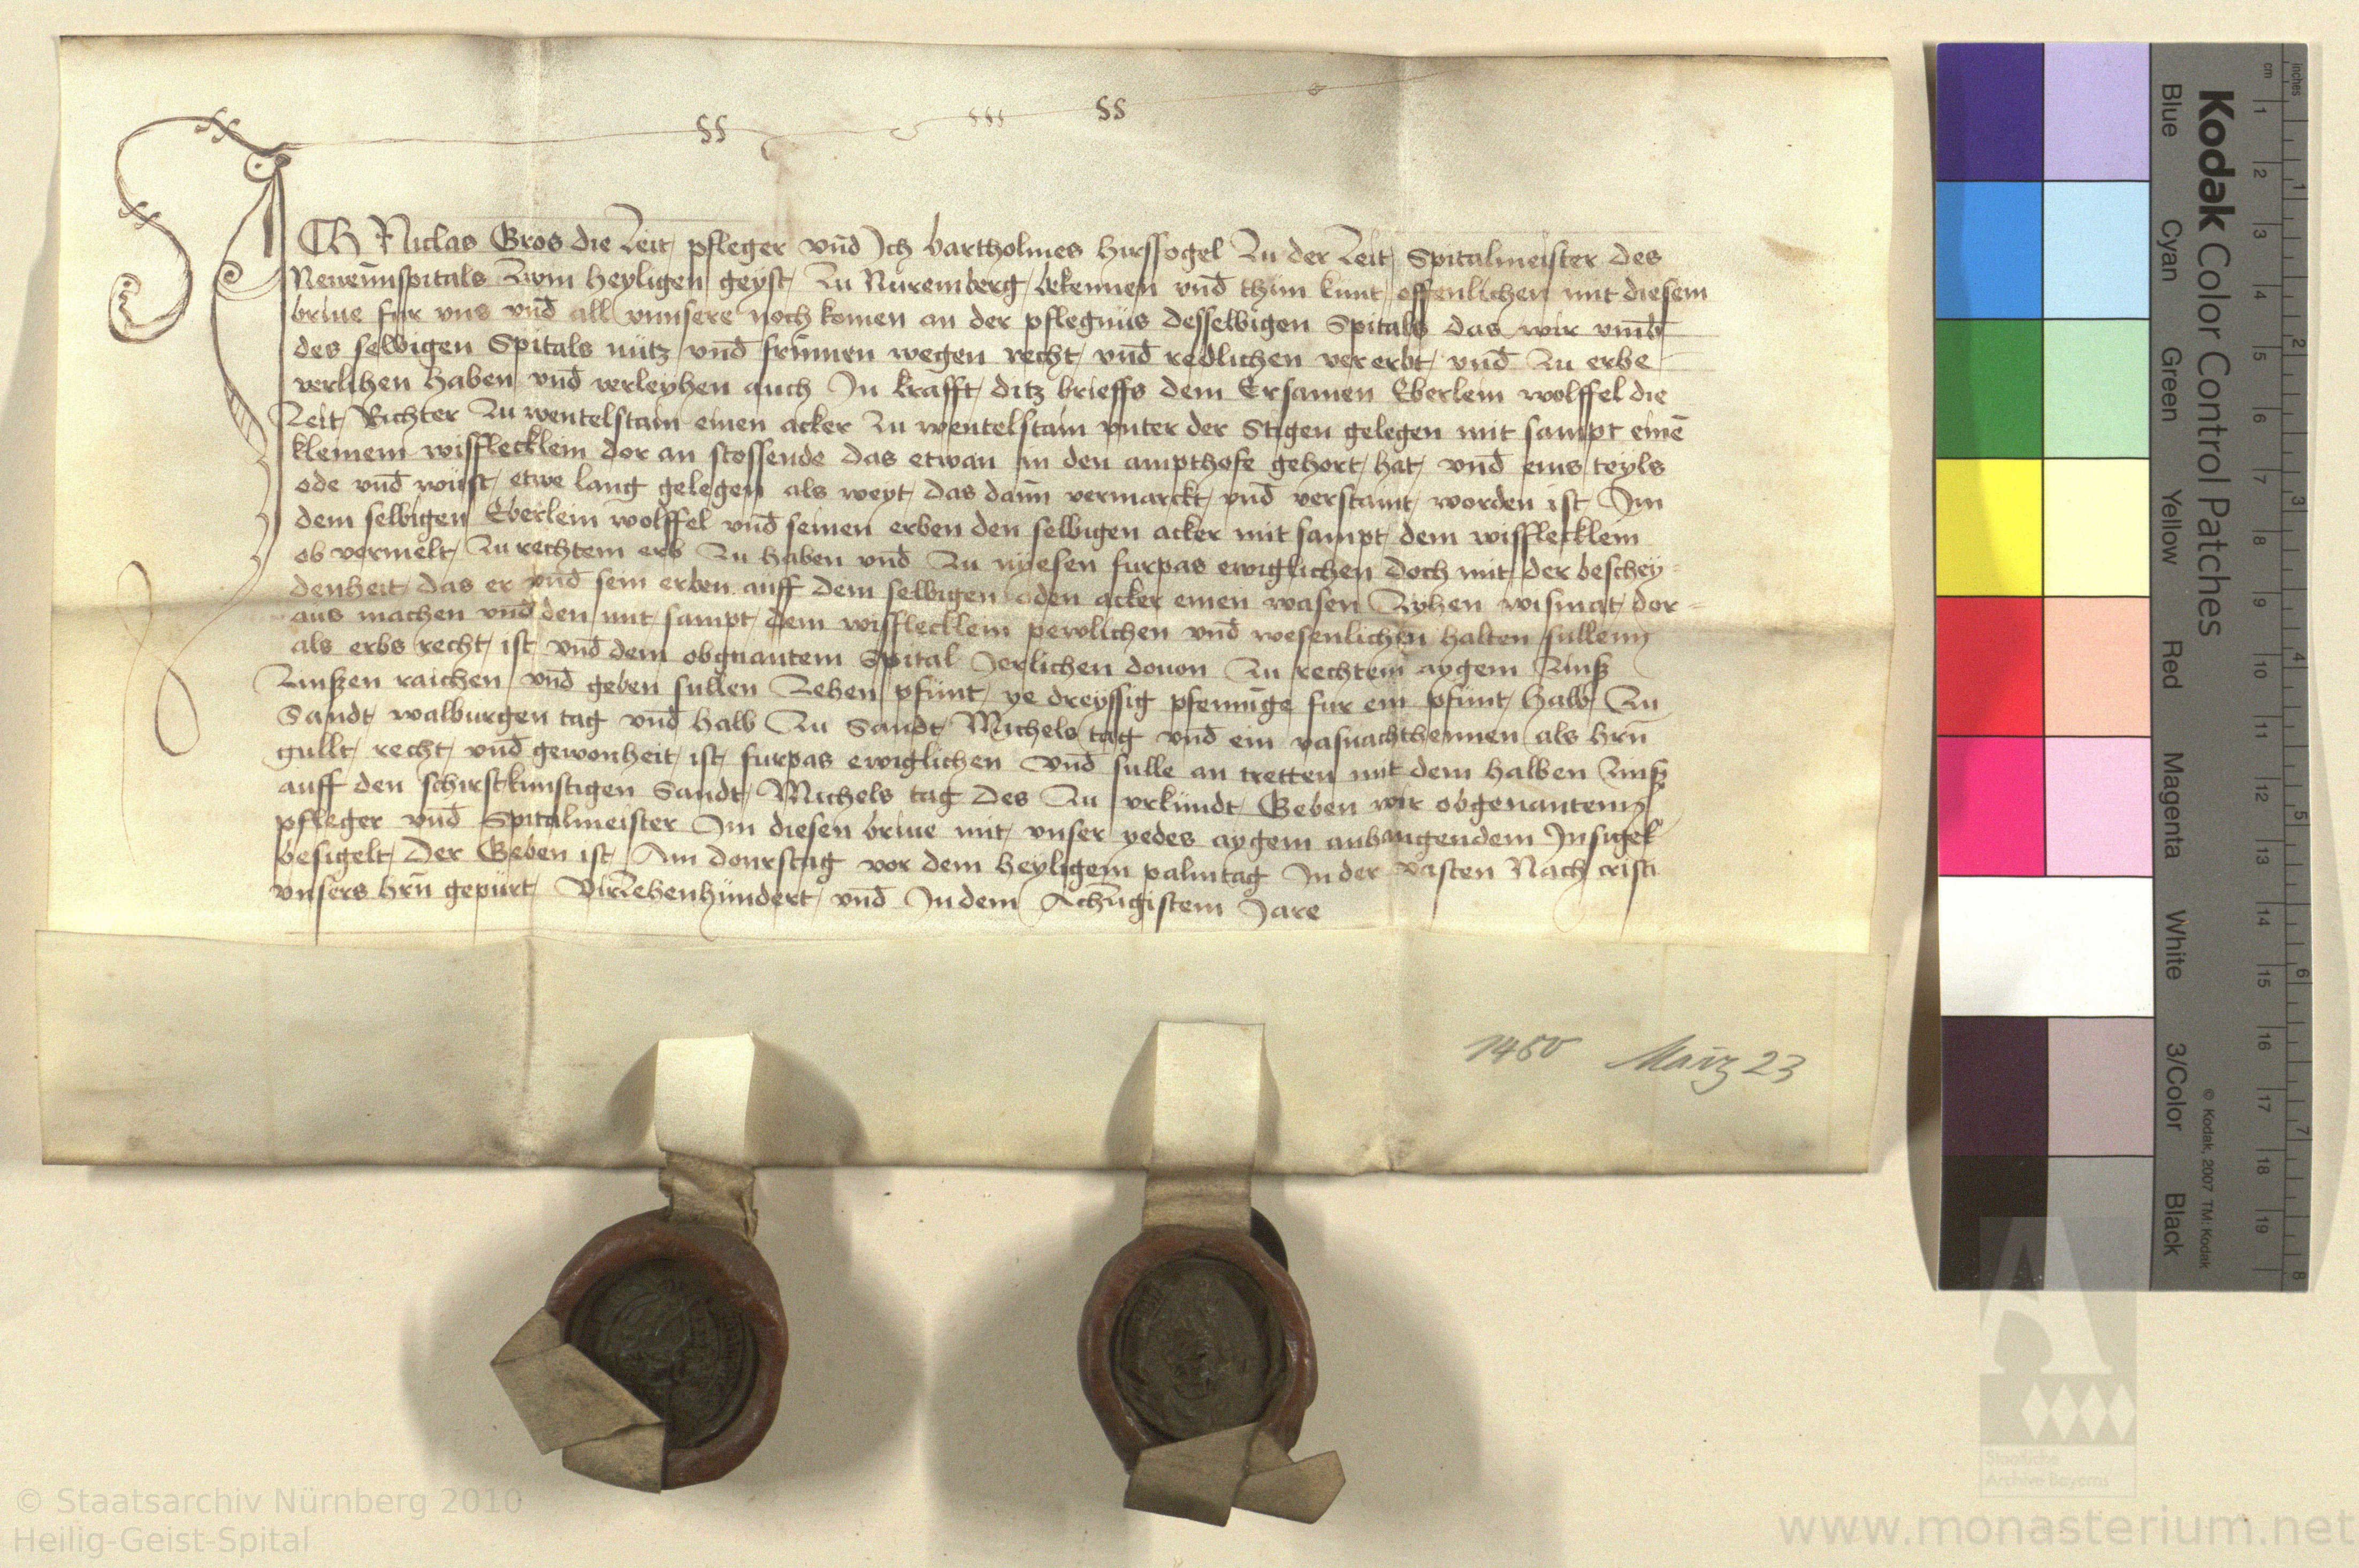 ICH Niclas Gros die Zeit pfleger vnd Ich bartholmes hirssogel Zu der Zeit Spitalmeister des
Newennspitals Zvm heyligen geyst Zu Nuremberg bekennen vnd thun kunt offenlichen mit diesem
briue fur vns vnd all vnnsere noch komen an der pflegnus desselbigen Spitals das wir vmb
des selbigen Spitals nutz vnd frumen wegen recht vnd redlichen vererbt vnd Zu erbe
verlihen haben vnd verleyhen auch In krafft ditz brieffs dem Ersamen Eberlein wolffel die
Zeit Richter Zu wentelstain einen acker Zu wentelstain vnter der Stigen gelegen mit sampt einē
kleinem wissflecklein dor an stossende das etwan in den ampthofe gehort hat vnd eins teyls
ode vnd wüst etwe lang gelegen als weyt das dann vermarckt vnd verstaint worden ist Im
dem selbigen Eberlein wolffel vnd seinen erben den selbigen acker mit sampt dem wissflecklein
ob vermelt Zu rechtem erb Zu haben vnd Zu nyesen furpas ewiglichen doch mit der beschey-
denheit das er vnd sein erben auff dem selbigen oden acker einen wasen Zyhen wismat dor-
aus machen vnd den mit sampt dem wissflecklein pewlichen vnd wesenlichen halten sullenn
als erbs recht ist vnd dem obgnantem Spital Jerlichen douon Zu rechtem aygem Zinß
Zinßen raichen vnd geben sullen Zehen pfunt ye dreyssig pfennige fur ein pfunt halb Zu
Sandt walburgen tag vnd halb Zu Sandt Michels tag vnd ein vasnachthennen als hrn
gullt recht vnd gewonheit ist furpas ewiglichen Vnd sulle an tretten mit dem halben Zinß
auff den schirstkunftigen Sandt Michels tag Des Zu vrkundt Geben wir obgenantenn
pfleger vnd Spitalmeister Im diesen briue mit vnser yedes aygem anhangendem Insigel
besigelt Der Geben ist Am donrstag vor dem heyligem palmtag In der vasten Nach cristi
vnsers hrn gepurt Virzehenhundert vnd In dem Achtzigistem Jare
1480 März 23
Kodak Color Control Patches
Blue Cyan Green Yellow Red Magenta White 3/Color Black
© Kodak, 2007 TM: Kodak
cm 1 2 3 4 5 6 7 8 9 10 11 12 13 14 15 16 17 18 19
inches 1 2 3 4 5 6 7 8
Staatliche
Archive Bayerns
© Staatsarchiv Nürnberg 2010
Heilig-Geist-Spital
www.monasterium.net